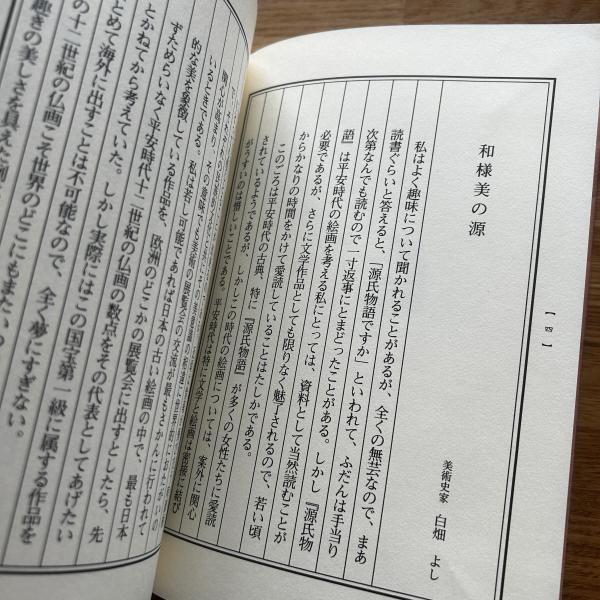 【四】
和様美の源
美術史家 白畑 よし
私はよく趣味について聞かれることがあるが、全くの無芸なので、まあ
読書ぐらいと答えると、「源氏物語ですか」といわれて、ふだんは手当り
次第なんでも読むので一寸返事にとまどったことがある。しかし『源氏物
語』は平安時代の絵画を考える私にとっては、資料として当然読むことが
必要であるが、さらに文学作品としても限りなく魅了されるので、若い頃
からかなりの時間をかけて愛読していることはたしかである。
このごろは平安時代の古典、特に『源氏物語』が多くの女性たちに愛読
されているようであるが、しかしこの時代の絵画については、案外に関心
がうすいのは惜しいことである。平安時代は特に文学と絵画は密接に結び
関心が高まり、その意味でも美術の展覧会の交流が最もさかんに行われて
いるときである。私は若し可能であれば日本の古い絵画の中で、最も日本
的な美を象徴している作品を、欧洲のどこかの展覧会に出すとしたら、先
ずためらいなく平安時代十二世紀の仏画の数点をその代表としてあげたい
とかねてから考えていた。しかし実際にはこの国宝第一級に属する作品を
とめて海外に出すことは不可能なので、全く夢にすぎない。
の十二世紀の仏画こそ世界のどこにもまたい
趣きの美しさを具えた